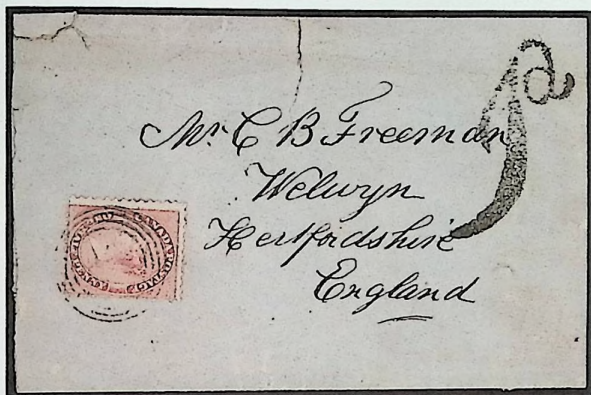 Mr. C B Freeman
Welwyn
Hertfordshire
England
CANADA POSTAGE